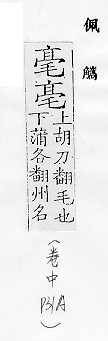 佩觿
毫亳
上胡刀翻毛也
下蒲各翻州名
(卷中
P31A)